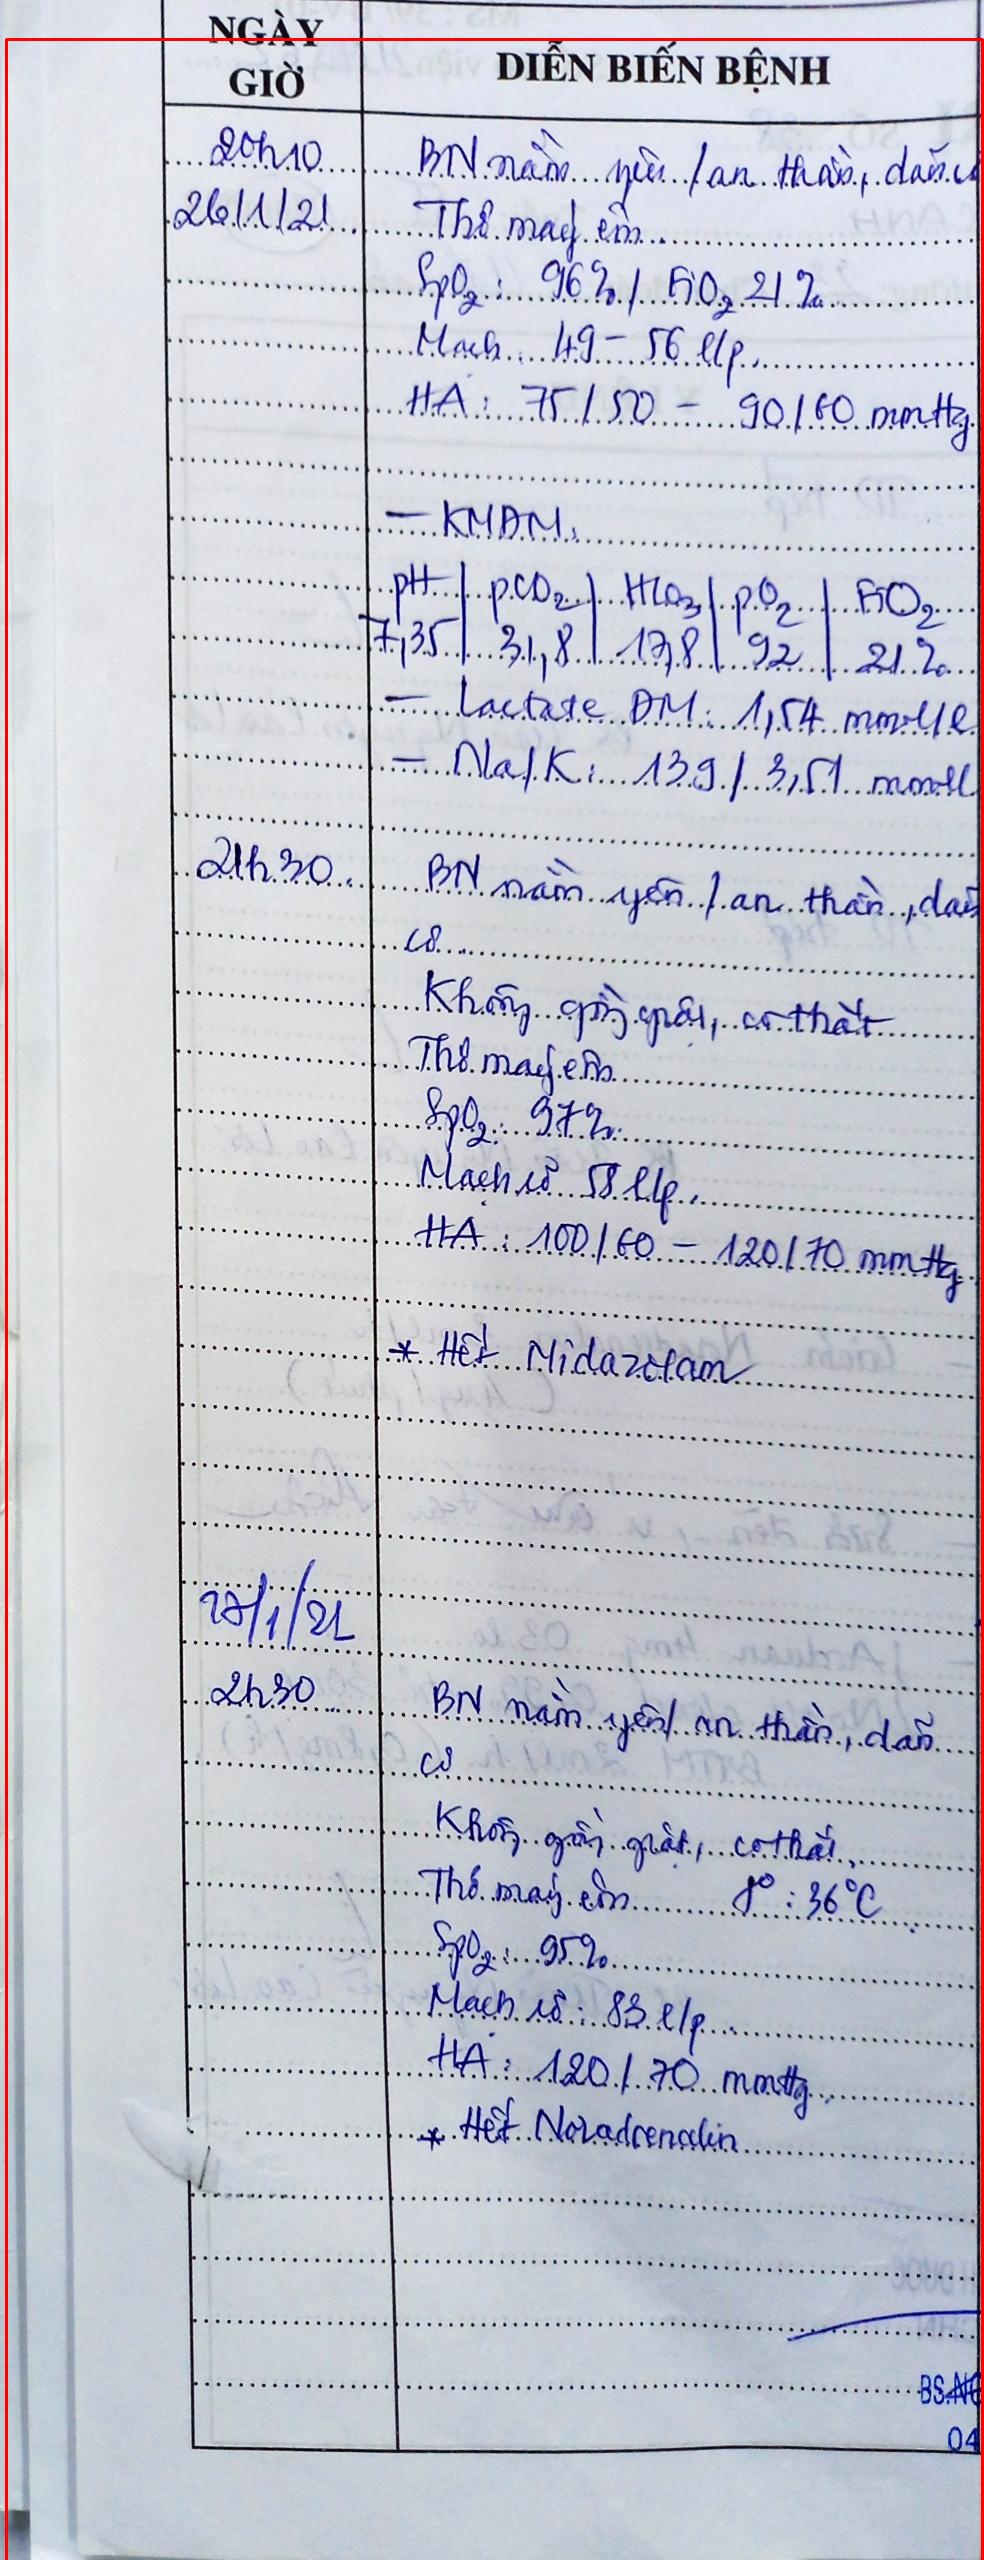 NGÀY
GIỜ
DIỄN BIẾN BỆNH
20h10
BN nằm yên / an thần, dãn cơ
26/1/21
Thở máy êm
SpO2: 96% / FiO2 21%
Mạch: 49 - 56 l/p
HA: 75/50 - 90/60 mmHg
- KMĐM:
pH | pCO2 | HCO3 | pO2 | FiO2
7,35 | 31,8 | 17,8 | 92 | 21%
- Lactate ĐM: 1,54 mmol/l
- Na/K: 139 / 3,51 mmol
21h30
BN nằm yên / an thần, dãn
cơ
Không gồng giật, co thắt
Thở máy êm
SpO2: 97%
Mạch cổ 58 l/p
HA: 100/60 - 120/70 mmHg
* Hết Midazolam
27/1/21
2h30
BN nằm yên / an thần, dãn
cơ
Không gồng giật, co thắt
Thở máy êm t°: 36°C
SpO2: 95%
Mạch cổ: 83 l/p
HA: 120/70 mmHg
* Hết Noradrenalin
BS.
04